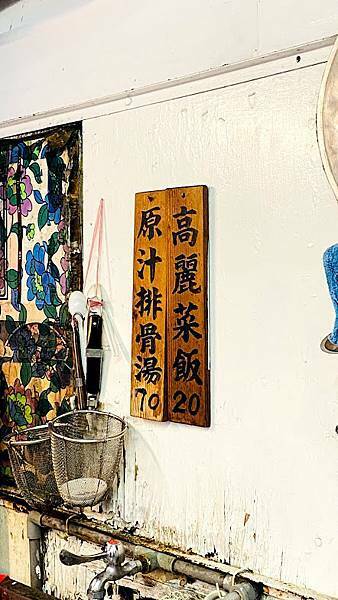 高麗菜飯20
原汁排骨湯70